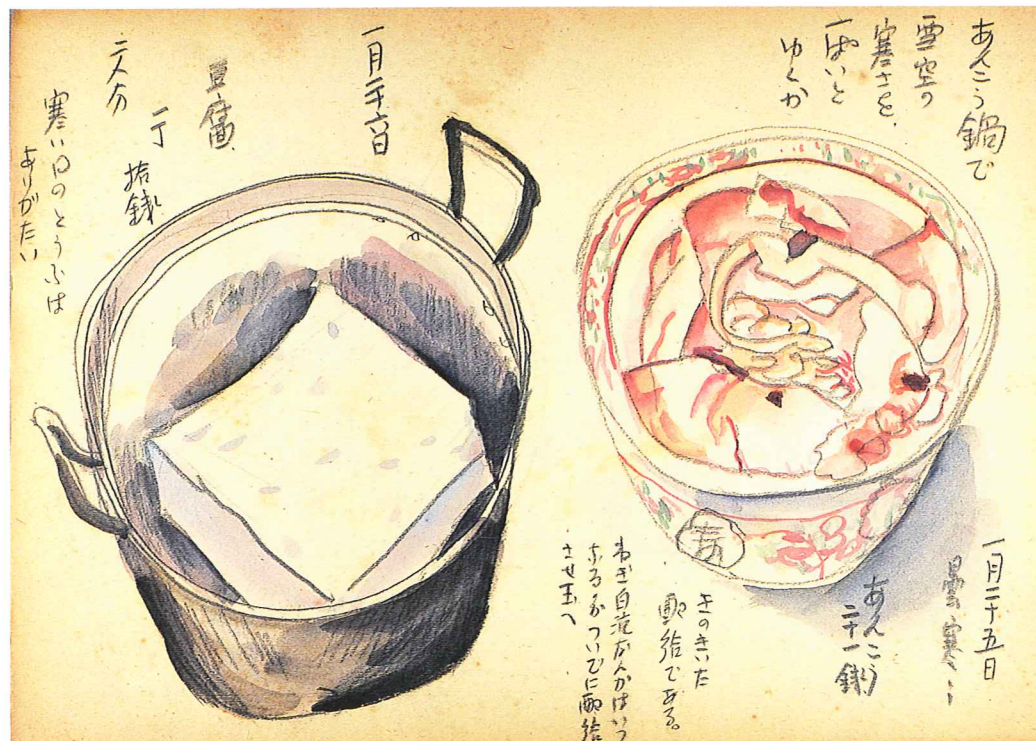 あんこう鍋で
雪空の
寒さを、
一ぱいと
ゆくか
一月二十五日
曇、寒
あんこう
二十一銭
きのきいた
配給である。
ねぎ白菜なんかはいつ
ついでに配給
させ玉へ
一月二十六日
豆腐、
一丁
拾銭
二人分
寒い日のとうふは
ありがたい